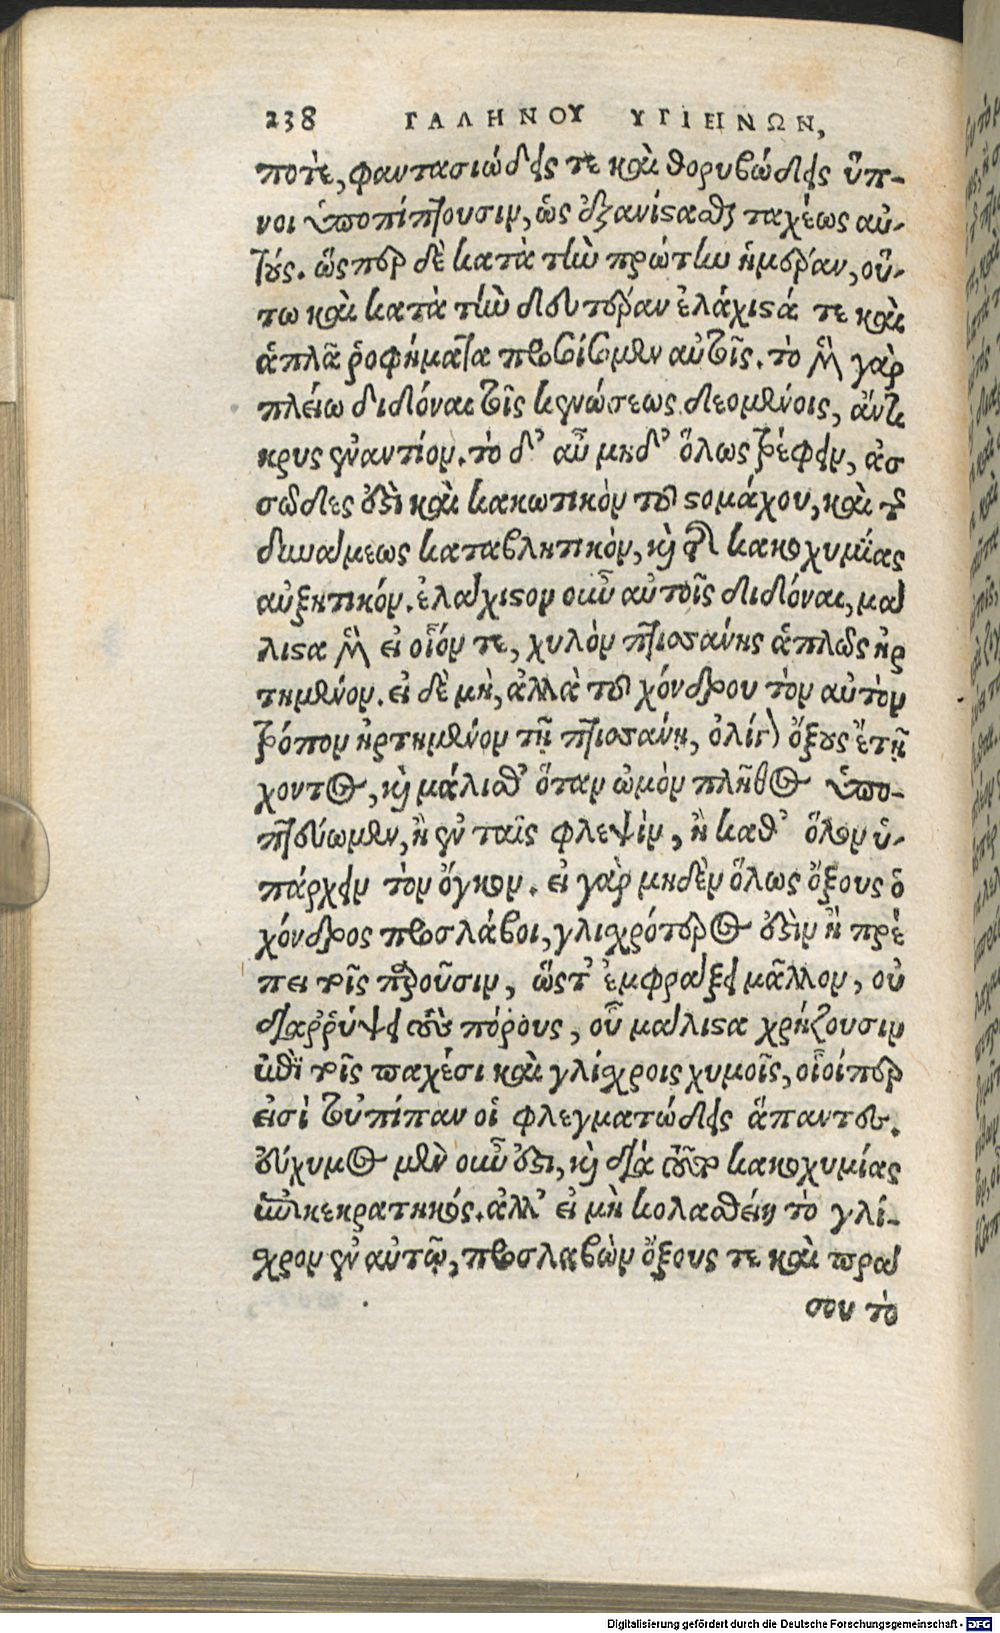 238 ΓΑΛΗΝΟΥ ΥΓΙΕΙΝΩΝ,
ποτὲ, φαντασιώδεις τε καὶ θορυβώδεις ὕπ-
νοι ὑποπίπτουσιν, ὡς ἐξανίστασθαι ταχέως αὐ-
τούς. ὥσπερ δὲ κατὰ τὴν πρώτην ἡμέραν, οὕ-
τω καὶ κατὰ τὴν δευτέραν ἐλάχιστά τε καὶ
ἁπλᾶ ῥοφήματα προσοίσομεν αὐτοῖς. τὸ μὲν γὰρ
πλείω διδόναι τοῖς κενώσεως δεομένοις, ἄντι-
κρυς ἐναντίον. τὸ δ' αὖ μηδ' ὅλως τρέφειν, ἀσ
σῶδές ἐστι καὶ κακωτικὸν τοῦ στομάχου, καὶ τῆς
δυνάμεως καταβλητικὸν, καὶ τῆς κακοχυμίας
αὐξητικόν. ἐλάχιστον οὖν αὐτοῖς διδόναι, μά
λιστα μὲν εἰ οἷόν τε, χυλὸν πτισσάνης ἁπλῶς ἠρ
τημένον. εἰ δὲ μὴ, ἀλλὰ τοῦ χόνδρου τὸν αὐτὸν
τρόπον ἠρτημένον τῇ πτισσάνῃ, ὀλίγον ὄξους ἔτι
χοντος, καὶ μάλισθ' ὅταν ὠμὸν πλῆθος ὑπο-
πτεύωμεν, ἢ ἐν ταῖς φλεψὶν, ἢ καθ' ὅλον ὑ-
πάρχειν τὸν ὄγκον. εἰ γὰρ μηδὲν ὅλως ὄξους ὁ
χόνδρος προσλάβοι, γλισχρότερος ἐστὶν ἢ πρέ
πει τοῖς πτοῦσιν, ὥστ' ἐμφράξει μᾶλλον, οὐ
διαῤῥύψει τοὺς πόρους, οὗ μάλιστα χρῄζουσιν
ἐπὶ τοῖς παχέσι καὶ γλίσχροις χυμοῖς, οἷοίπερ
εἰσὶ τοὐπίπαν οἱ φλεγματώδεις ἅπαντες.
εὔχυμος μὲν οὖν ἐστι, καὶ διὰ τοῦτο κακοχυμίας
ἐπικεκρατηκός. ἀλλ' εἰ μὴ κολασθείη τὸ γλί-
σχρον ἐν αὐτῷ, προσλαβὼν ὄξους τε καὶ πρά
σου τὸ
Digitalisierung gefördert durch die Deutsche Forschungsgemeinschaft - DFG